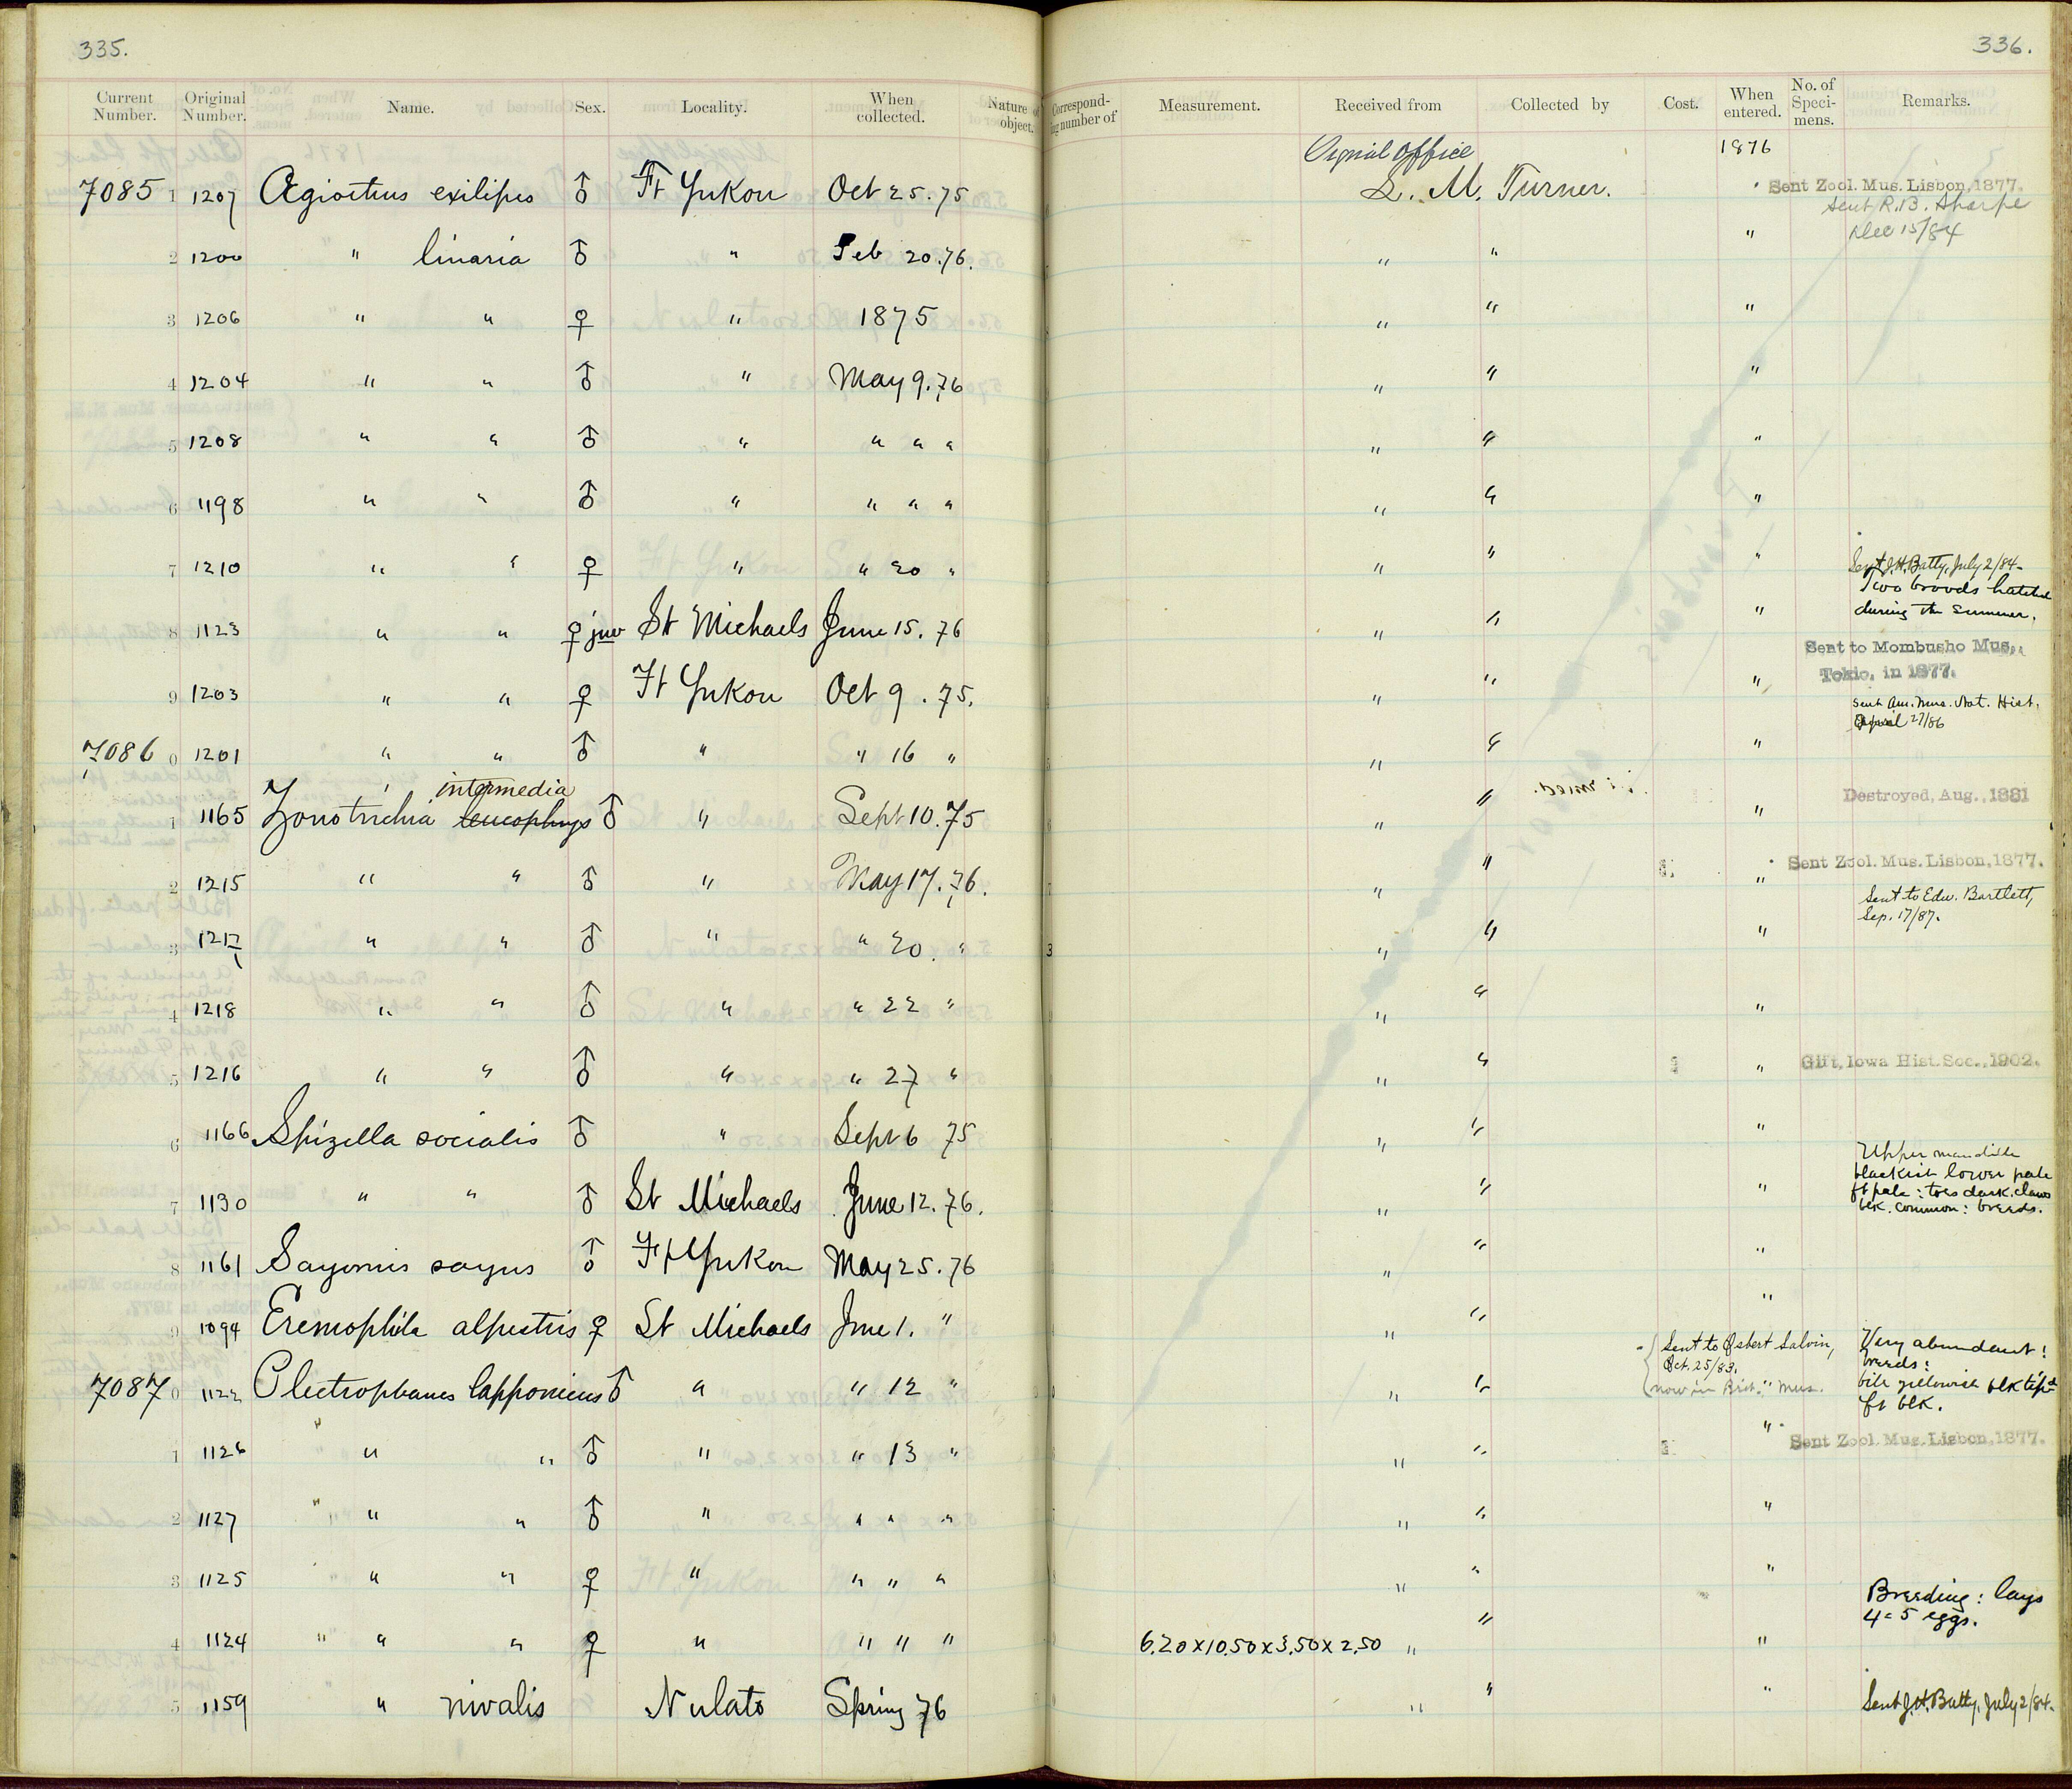 335.
336.
Current Number. Original Number. Name. Sex. Locality. When collected. Nature of object. Corresponding number of Measurement. Received from Collected by Cost. When entered. No. of Specimens. Remarks.
Signal Office 1876
7085 1 1207 Ægiothus exilipes ♂ Ft Yukon Oct 25. 75 L. M. Turner. Sent Zool. Mus. Lisbon, 1877.
Sent R. B. Sharpe
Dec 15/84
2 1200 " linaria ♂ " Feb 20. 76. " " "
3 1206 " " ♀ " 1875 " " "
4 1204 " " ♂ " May 9. 76 " " "
5 1208 " " ♂ " " " " " " "
6 1198 " " ♂ " " " " " " "
7 1210 " " ♀ " " 20 " " " " Sent J. H. Batty, July 2/84.
8 1123 " " ♀ juv St Michaels June 15. 76 " " " Two broods hatched
during the summer.
Sent to Mombusho Mus.,
Tokio, in 1877.
9 1203 " " ♀ Ft Yukon Oct 9. 75. " " "
Sent Am. Mus. Nat. Hist.
April 27/86
7086 0 1201 " " ♂ " " 16 " " " "
intermedia
1 1165 Zonotrichia leucophrys ♂ " Sept 10. 75 " " " Destroyed, Aug., 1881
2 1215 " " ♂ " May 17. 76. " " " Sent Zool. Mus. Lisbon, 1877.
Sent to Edw. Bartlett,
Sep. 17/87.
3 1217 " " ♂ " " 20. " 3 " " "
4 1218 " " ♂ " " 22 " " " "
5 1216 " " ♂ " " 27 " " " " Gift, Iowa Hist. Soc., 1902.
6 1166 Spizella socialis ♂ " Sept 6 75 " " "
7 1130 " " ♂ St Michaels June 12. 76. " " " Upper mandible
blackish lower pale
ft pale: toes dark. claws
blk. common: breeds.
8 1161 Sayornis sayus ♂ Ft Yukon May 25. 76 " " "
9 1094 Eremophila alpestris ♀ St Michaels June 1. " " " "
Sent to Osbert Salvin,
Oct. 25/83.
now in Brit. Mus.
Very abundant!
breeds:
bill yellowish blk tip
ft blk.
7087 0 1122 Plectrophanes lapponicus ♂ " " 12 " " " "
1 1126 " " ♂ " " 13 " " " " Sent Zool. Mus. Lisbon, 1877.
2 1127 " " ♂ " " " " " " "
3 1125 " " ♀ " " " " " " "
Breeding: lays
4=5 eggs.
4 1124 " " ♀ " " " " 6.20 x 10.50 x 3.50 x 2.50 " " "
5 1159 " nivalis Nulato Spring 76 " " " Sent J. H. Batty, July 2/84.